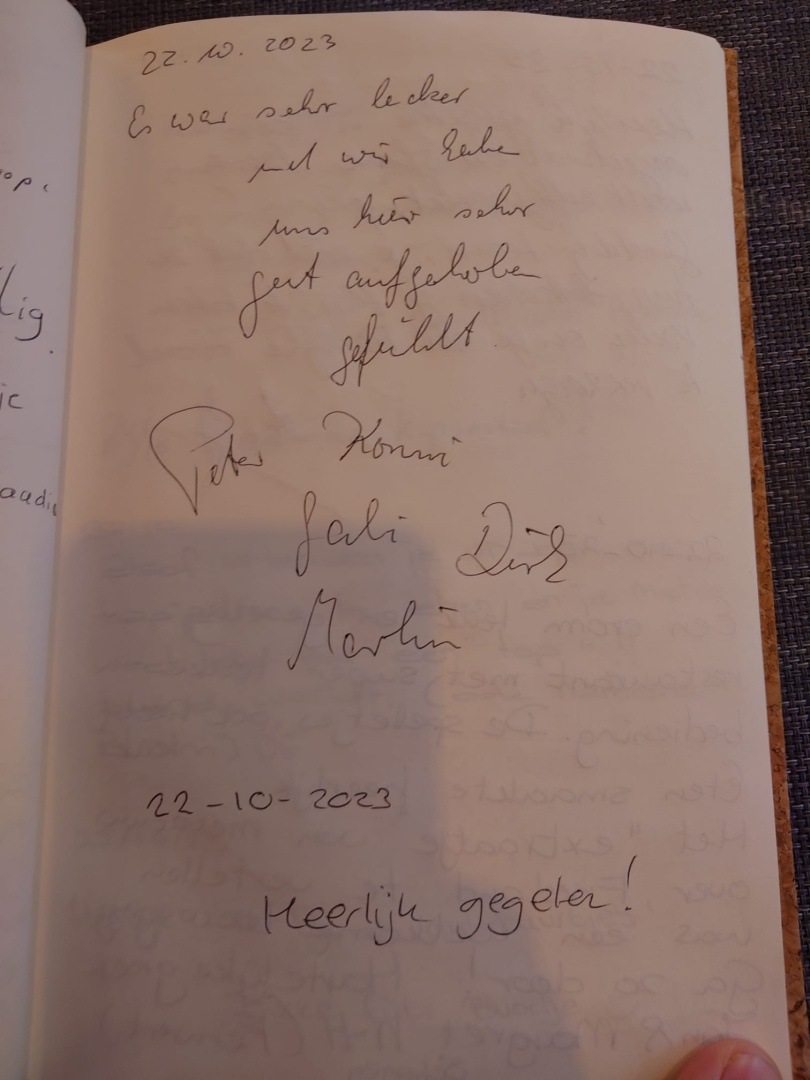 22.10.2023
Es war sehr lecker
und wir haben
uns hier sehr
gut aufgehoben
gefühlt.
Peter Konni
Gabi Dirk
Martin
22-10-2023
Heerlijk gegeten!